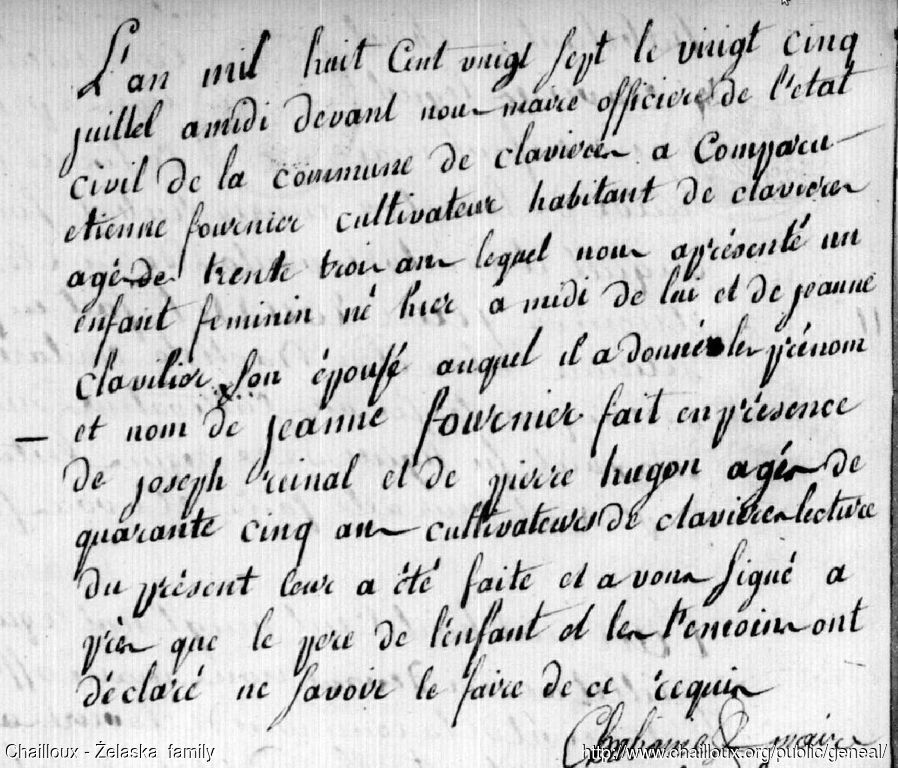 L'an mil huit Cent vingt sept le vingt cinq
juillet a midi devant nous maire officiere de l'état
civil de la commune de clavieres a Comparu
etienne fournier cultivateur habitant de clavieres
agé de trente trois ans lequel nous aprésenté un
enfant feminin né hier a midi de lui et de jeanne
clavilier son épouse auquel il a donné les prénom
et nom de jeanne fournier fait en présence
de joseph de pierre hugon agés de
quarante cinq ans cultivateurs de clavieres lecture
du présent leur a été faite et avons signé a
près que le pere de l'enfant et les temoins ont
déclaré ne savoir le faire de ce requis
maire
Chailloux - Żelaska family
http://www.chailloux.org/public/geneal/